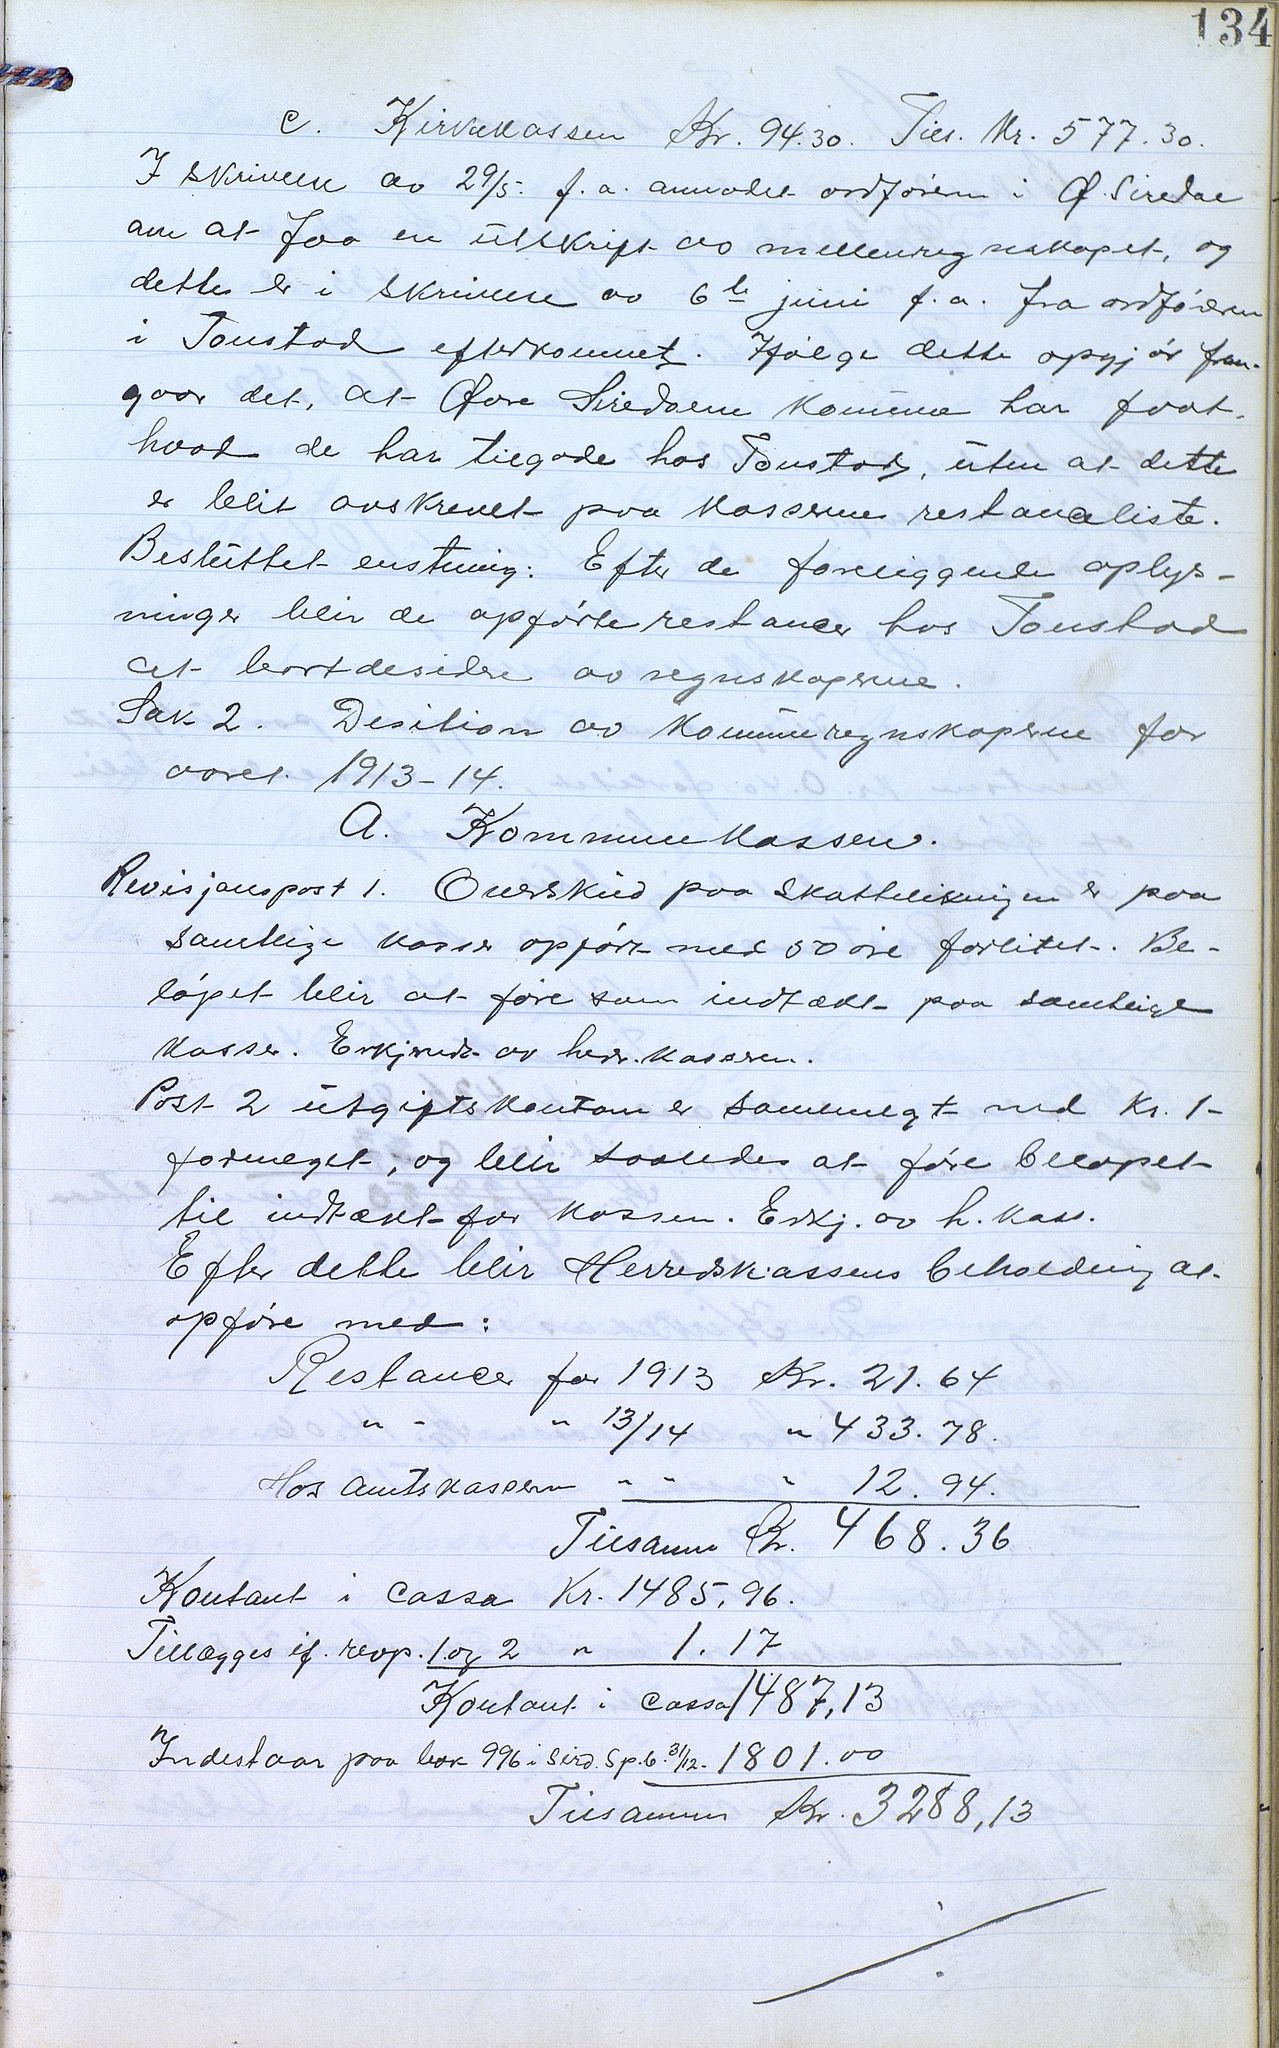 134
c. Kirkekassen Kr. 94.30. Tils. Kr. 577.30.
I skrivelse av 29/5. f. a. anmodet ordføreren i Ø. Siredal
om at faa en utskrift av mellemregnskapet, og
dette er i skrivelse av 6te juni f. a. fra ordføreren
i Tonstad efterkommet. Ifølge dette opgjør frem-
gaar det, at Øvre Siredalens kommune har faat
hvad de har tilgode hos Tonstad, uten at dette
er blit avskrevet paa kassernes restanceliste.
Besluttet enstemmig: Efter de foreliggende oplys-
ninger blir de opførte restancer hos Tonstad
at bortdesidere av regnskaperne.
Sak 2. Desition av kommuneregnskaperne for
aaret 1913-14.
A. Kommunekassen.
Revisjonspost 1. Overskud paa skatteligningen er paa
samtlige kasser opført med 50 øre forlitet. Be-
løpet blir at føre som indtækt paa samtlige
kasser. Erkjendt av herr. kasseren.
Post 2 utgiftskontoen er sammenlagt med Kr. 1-
formeget, og blir saaledes at føre beløpet
til indtækt for kassen. Erkj. av h. kass.
Efter dette blir Herredskassens beholdning at
opføre med:
Restancer for 1913 Kr. 21.64
" - " 13/14 " 433.78.
Hos Amtskasseren " " " 12.94.
Tilsammen Kr. 468.36
Kontant i Cassa Kr. 1485,96.
Tillægges if. revp. 1 og 2 " 1.17
Kontant i cassa 1487,13
Indestaar paa bok 996 i Sird. Sp.b. 31/12- 1801.00
Tilsammen Kr. 3288,13